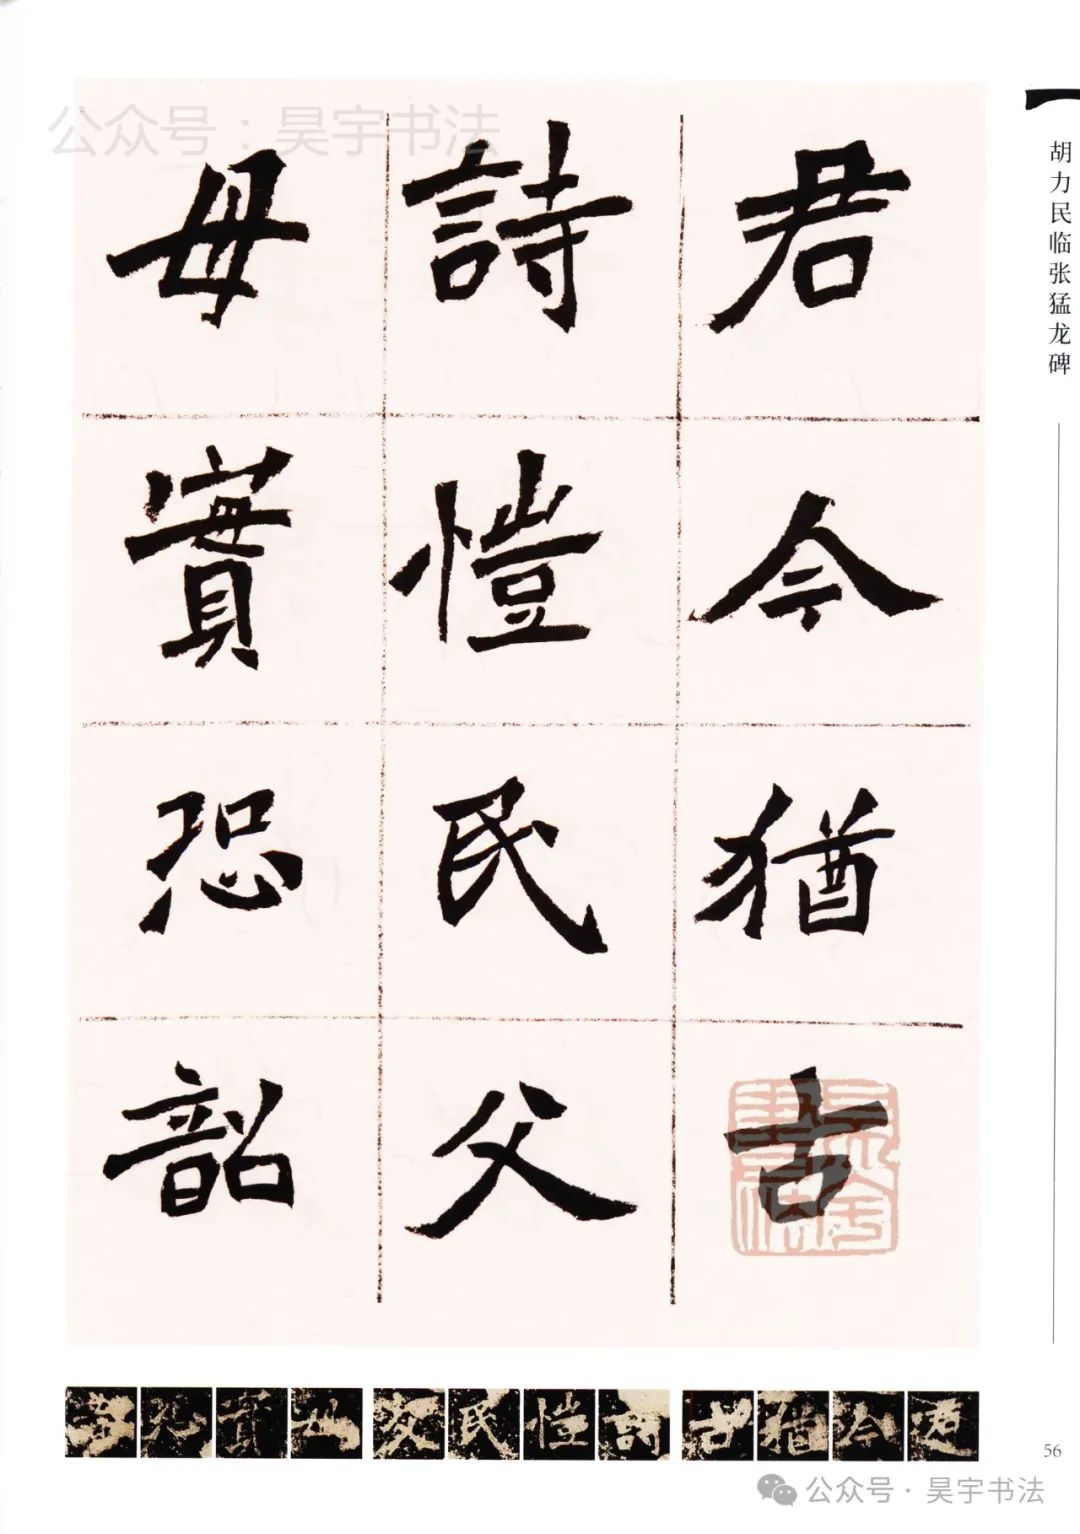 公众号：昊宇书法
胡力民临张猛龙碑
君今猶古
詩愷民父
母實恐韶
56
公众号·昊宇书法